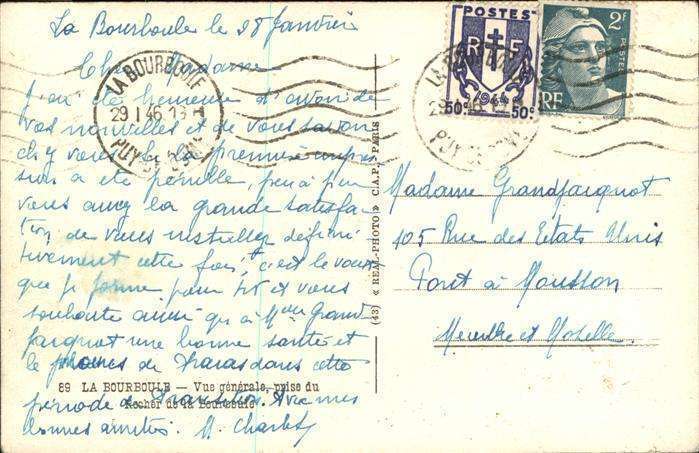 La Bourboule le 28 Janvier
Chère Madame
J'ai été heureuse d'avoir de
vos nouvelles et de vous savoir
chez vous la première impres
sion a été pénible, peu à peu
vous aurez la grande satisfac
tion de vous installer défini
tivement cette fois, c'est le voeu
que je forme pour et vous
souhaite ainsi qu'à Mr Grand
jacquot une bonne santé et
le de dans cette
période de transition. Avec mes
bonnes amitiés. M. Charlet
89 LA BOURBOULE — Vue générale, prise du
Rocher de la Bourboule
(43) « REAL-PHOTO » C.A.P., PARIS
LA BOURBOULE
29 I 46
PUY DE DOME
POSTES
RF
1944
50c 50c
2F
POSTES
RF
LA BOURBOULE
PUY DE DOME
Madame Grandjacquot
105 Rue des Etats Unis
Pont à Mousson
Meurthe et Moselle.